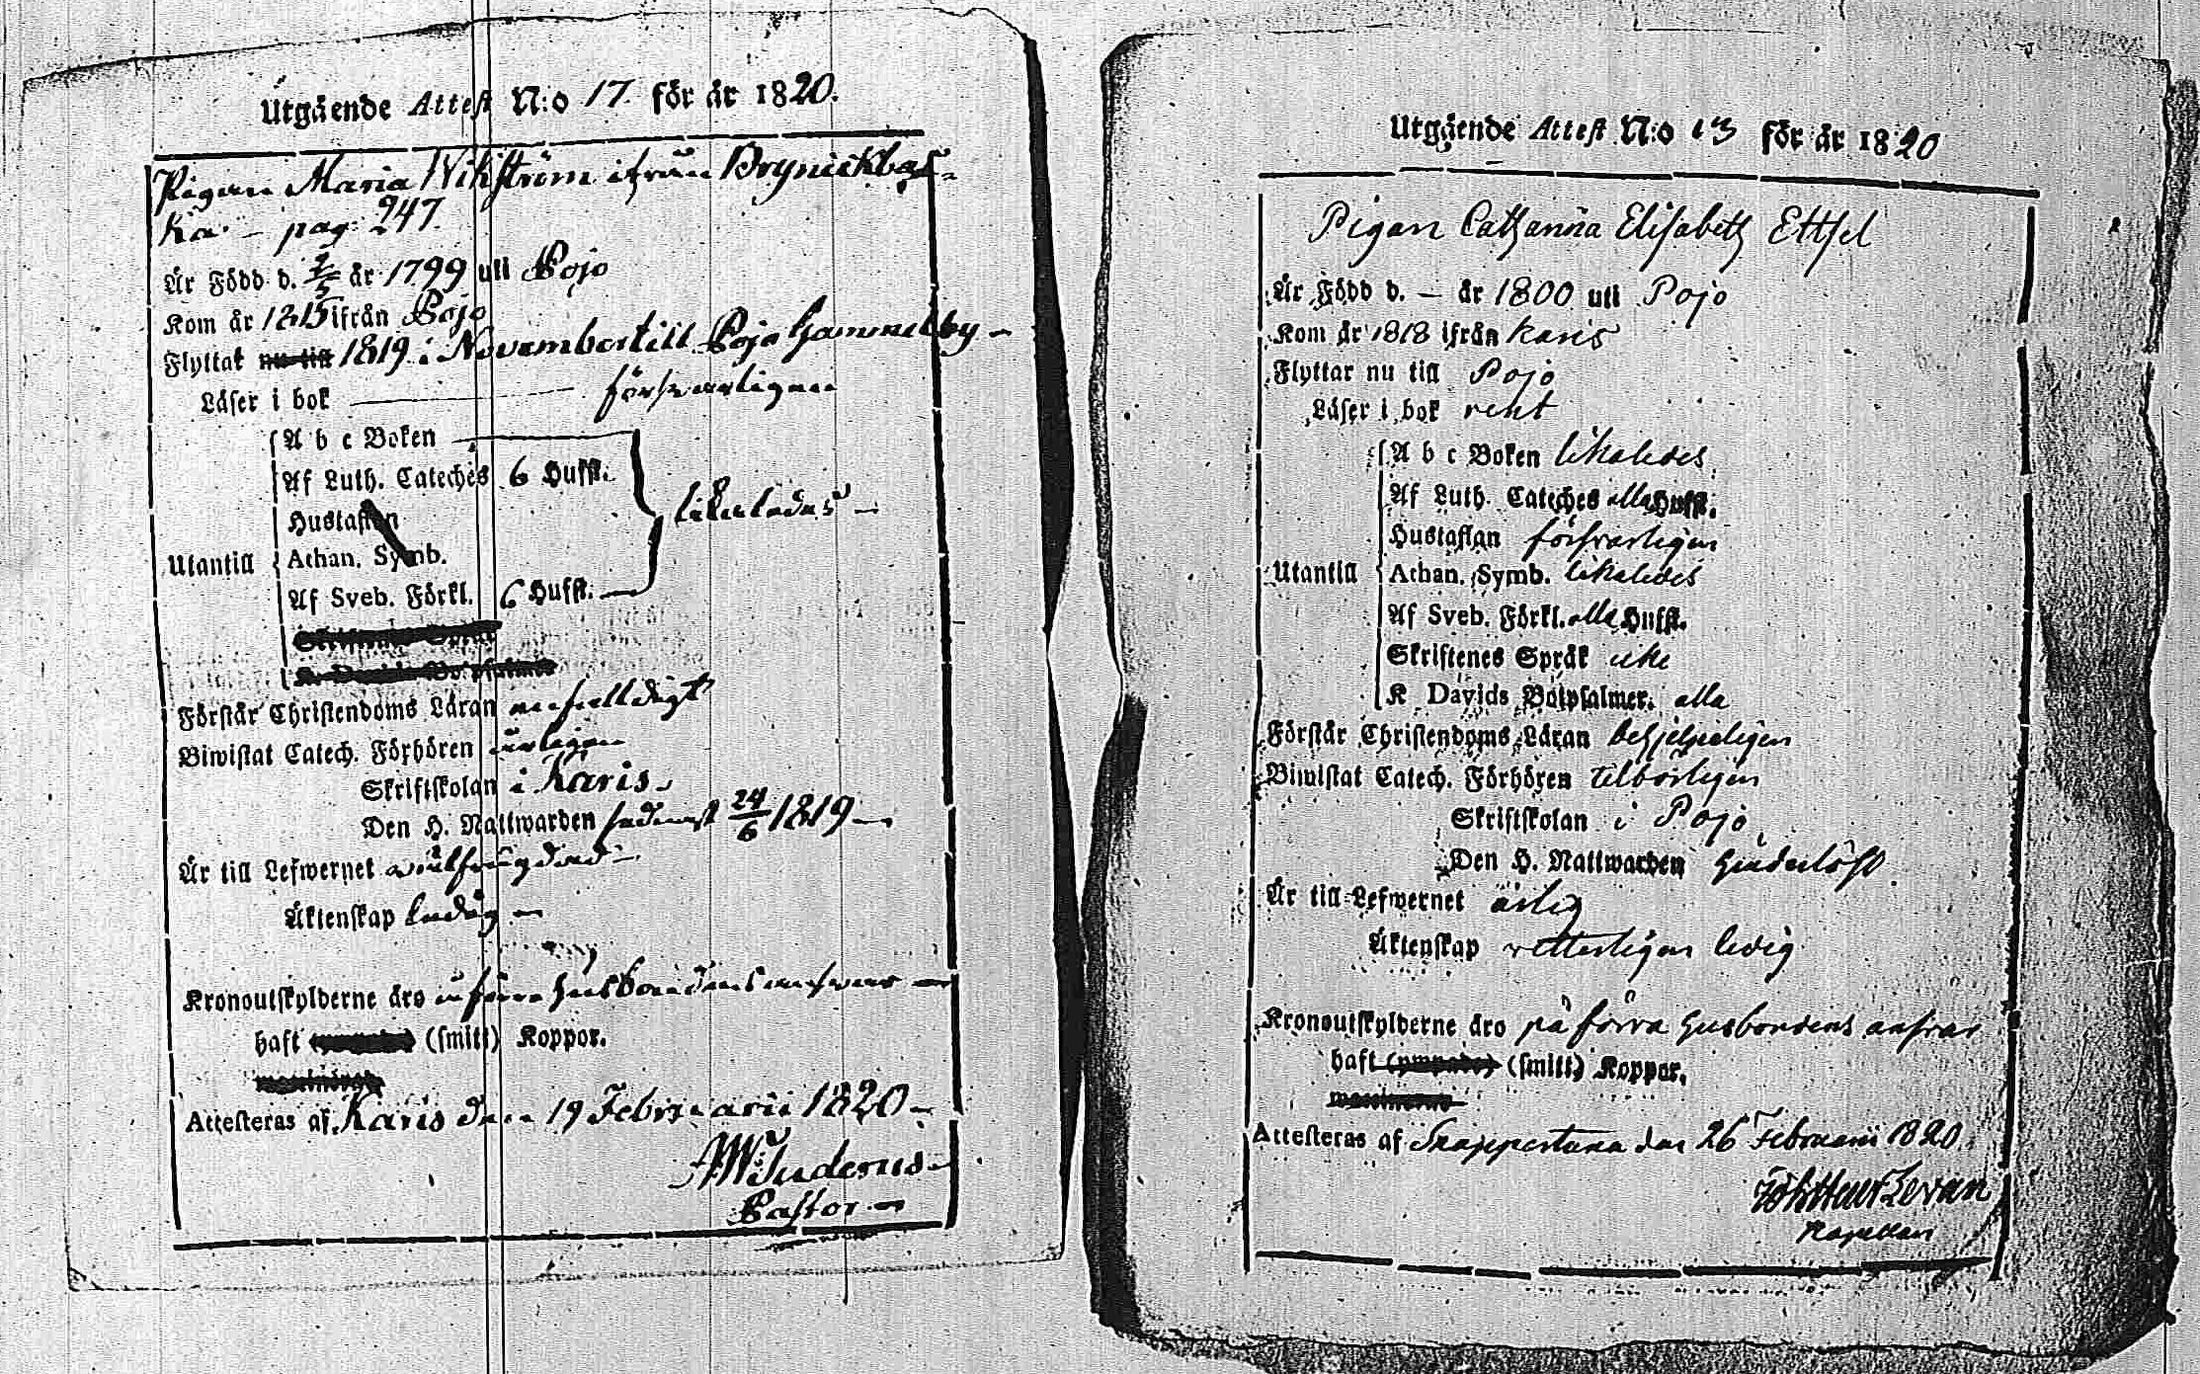 Utgående Attest N:o 17. för år 1820.
Pigan Maria Wikström ifrån Brynickbac-
ka – pag: 247.
Är Född d. 2/5 år 1799 uti Pojo
Kom år 1815 ifrån Pojo
Flyttat nu till 1819 i November till Pojo Gammelby –
Läser i bok försvarligen
A b c Boken
Af Luth. Cateches 6 Hufst.
Hustaflan
likaledes –
Utantill Athan. Symb.
Af Sveb. Förkl. 6 Hufst.
Förstår Christendoms Läran enfalldigt
Biwistat Catech. Förhören årligen
Skriftskolan i Karis
Den H. Nattwarden sednast 24/6 1819 –
Är till Lefwernet wälfrägdad –
Äktenskap ledig –
Kronoutskylderne äro å förra Husbondens answar –
haft (smitt) Koppor.
Attesteras af Karis den 19 Februarii 1820 –
Pastor –
Utgående Attest N:o 13 för år 1820
Pigan Catharina Elisabeth
Är Född d. – år 1800 uti Pojo
Kom år 1818 ifrån Karis
Flyttar nu till Pojo
Läser i bok rent
A b c Boken likaledes
Af Luth. Cateches alla Hufst.
Hustaflan försvarligen
Utantill Athan. Symb. likaledes
Af Sveb. Förkl. alla Hufst.
Skriftenes Språk icke
K Davids Botpsalmer. alla
Förstår Christendoms Läran behjelpeligen
Biwistat Catech. Förhören tilbörligen
Skriftskolan i Pojo
Den H. Nattwarden
Är till Lefwernet ärlig
Äktenskap ledig
Kronoutskylderne äro på förra Husbondens ansvar
haft (ympade) (smitt) Koppor.
Attesteras af Snappertuna den 26 Februarii 1820
Kapellan